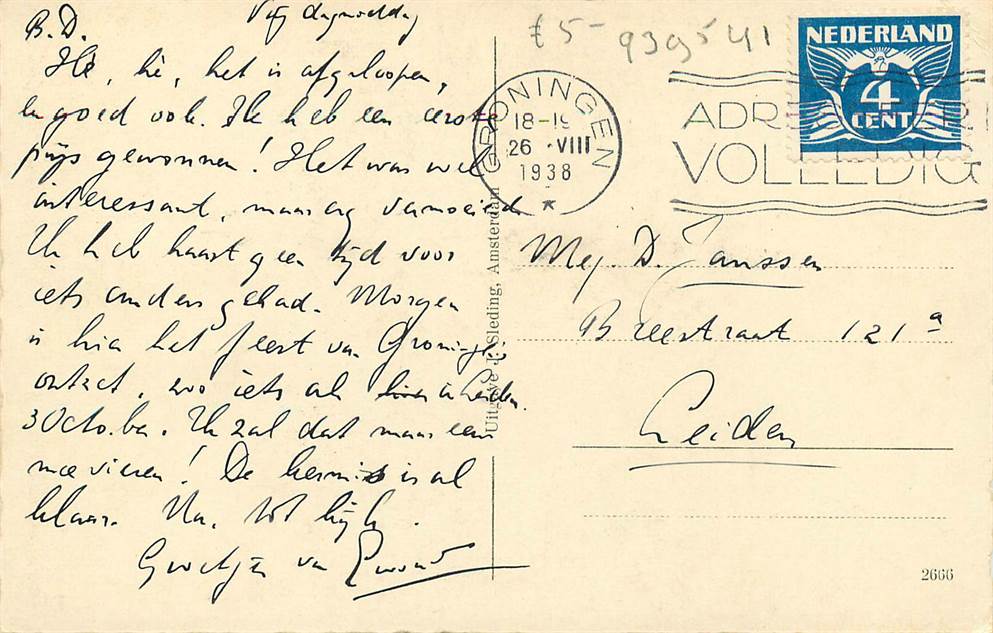 Vrijdagmiddag
B.D.
Hè, hè, het is afgeloopen,
en goed ook. Ik heb een eerste
prijs gewonnen! Het was wel
interessant, maar erg vermoeiend
Ik heb haast geen tijd voor
iets anders gehad. Morgen
is hier het feest van Groningens
ontzet, zoo iets als in Leiden
3 October. Ik zal dat maar eens
mee vieren! De kermis is al
klaar. Nu, tot kijk.
Groetjes van
£ 5-
939541
NEDERLAND
4
CENT
GRONINGEN
18-19
26 VIII
1938
ADRESSEER
VOLLEDIG
Uitgave J. Sleding, Amsterdam
Mej. D. Janssen
Breestraat 121a
Leiden
2666